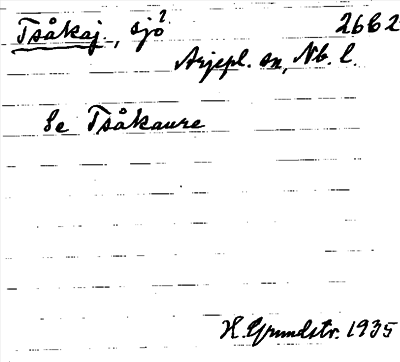 Tsåkaj., sjö? 26C2
Arjepl. sn, Nb. l.
Se Tsåkaure
H. Grundstr. 1935